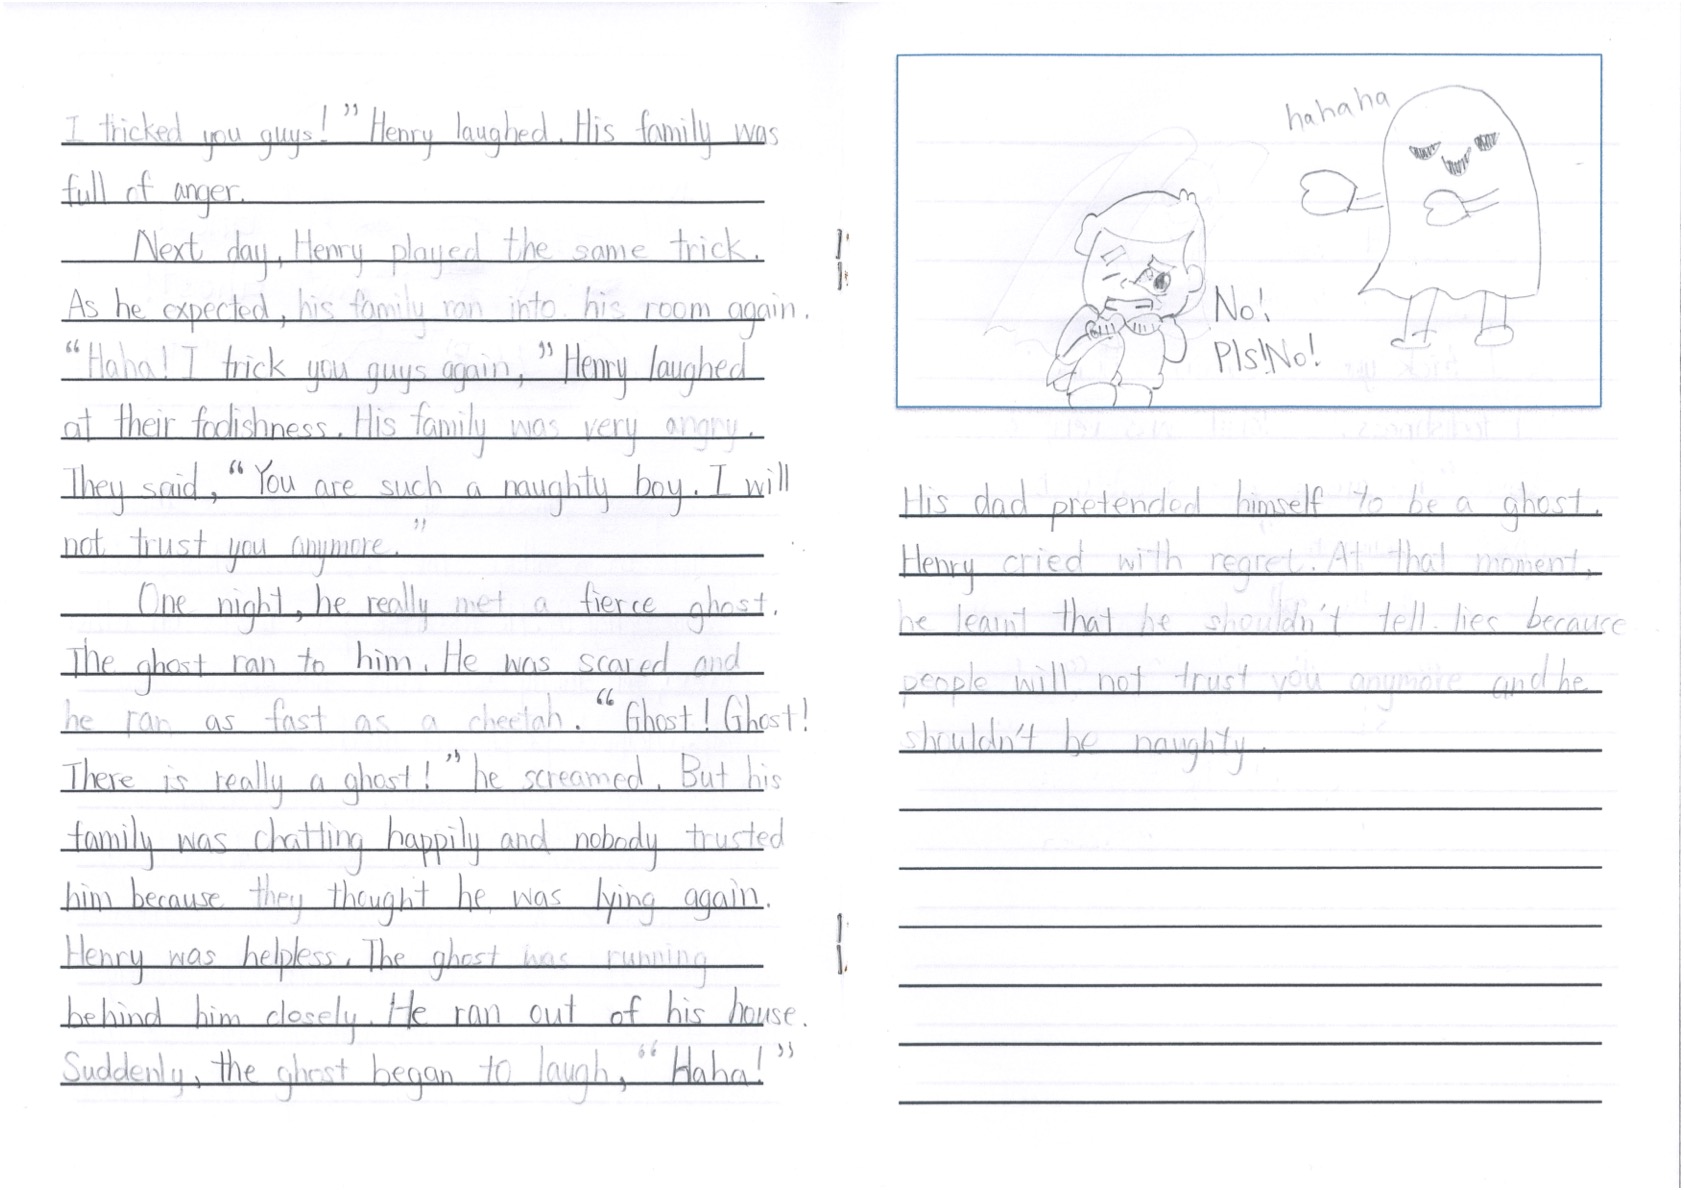 I tricked you guys!" Henry laughed. His family was
full of anger.
Next day, Henry played the same trick.
As he expected, his family ran into his room again.
"Haha! I trick you guys again," Henry laughed
at their foolishness. His family was very angry.
They said, "You are such a naughty boy. I will
not trust you anymore."
One night, he really met a fierce ghost.
The ghost ran to him. He was scared and
he ran as fast as a cheetah. "Ghost! Ghost!
There is really a ghost!" he screamed. But his
family was chatting happily and nobody trusted
him because they thought he was lying again.
Henry was helpless. The ghost was running
behind him closely. He ran out of his house.
Suddenly, the ghost began to laugh, "Haha!"
hahaha
No!
Pls!No!
His dad pretended himself to be a ghost.
Henry cried with regret. At that moment,
he learnt that he shouldn't tell lies because
people will not trust you anymore and he
shouldn't be naughty.